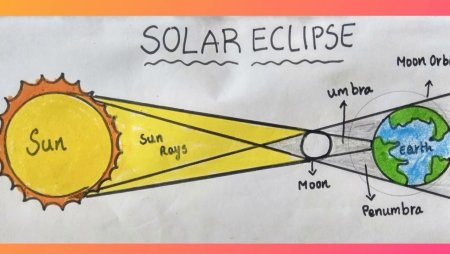 SOLAR ECLIPSE
Moon Orbi
umbra
Sun
Sun
Rays
earth
Moon
Penumbra